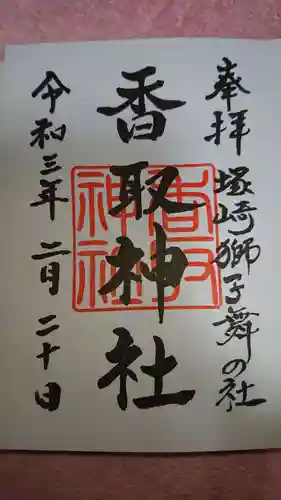 奉拝 塚崎獅子舞の社
香取神社
令和三年 二月 二十日
香取神社